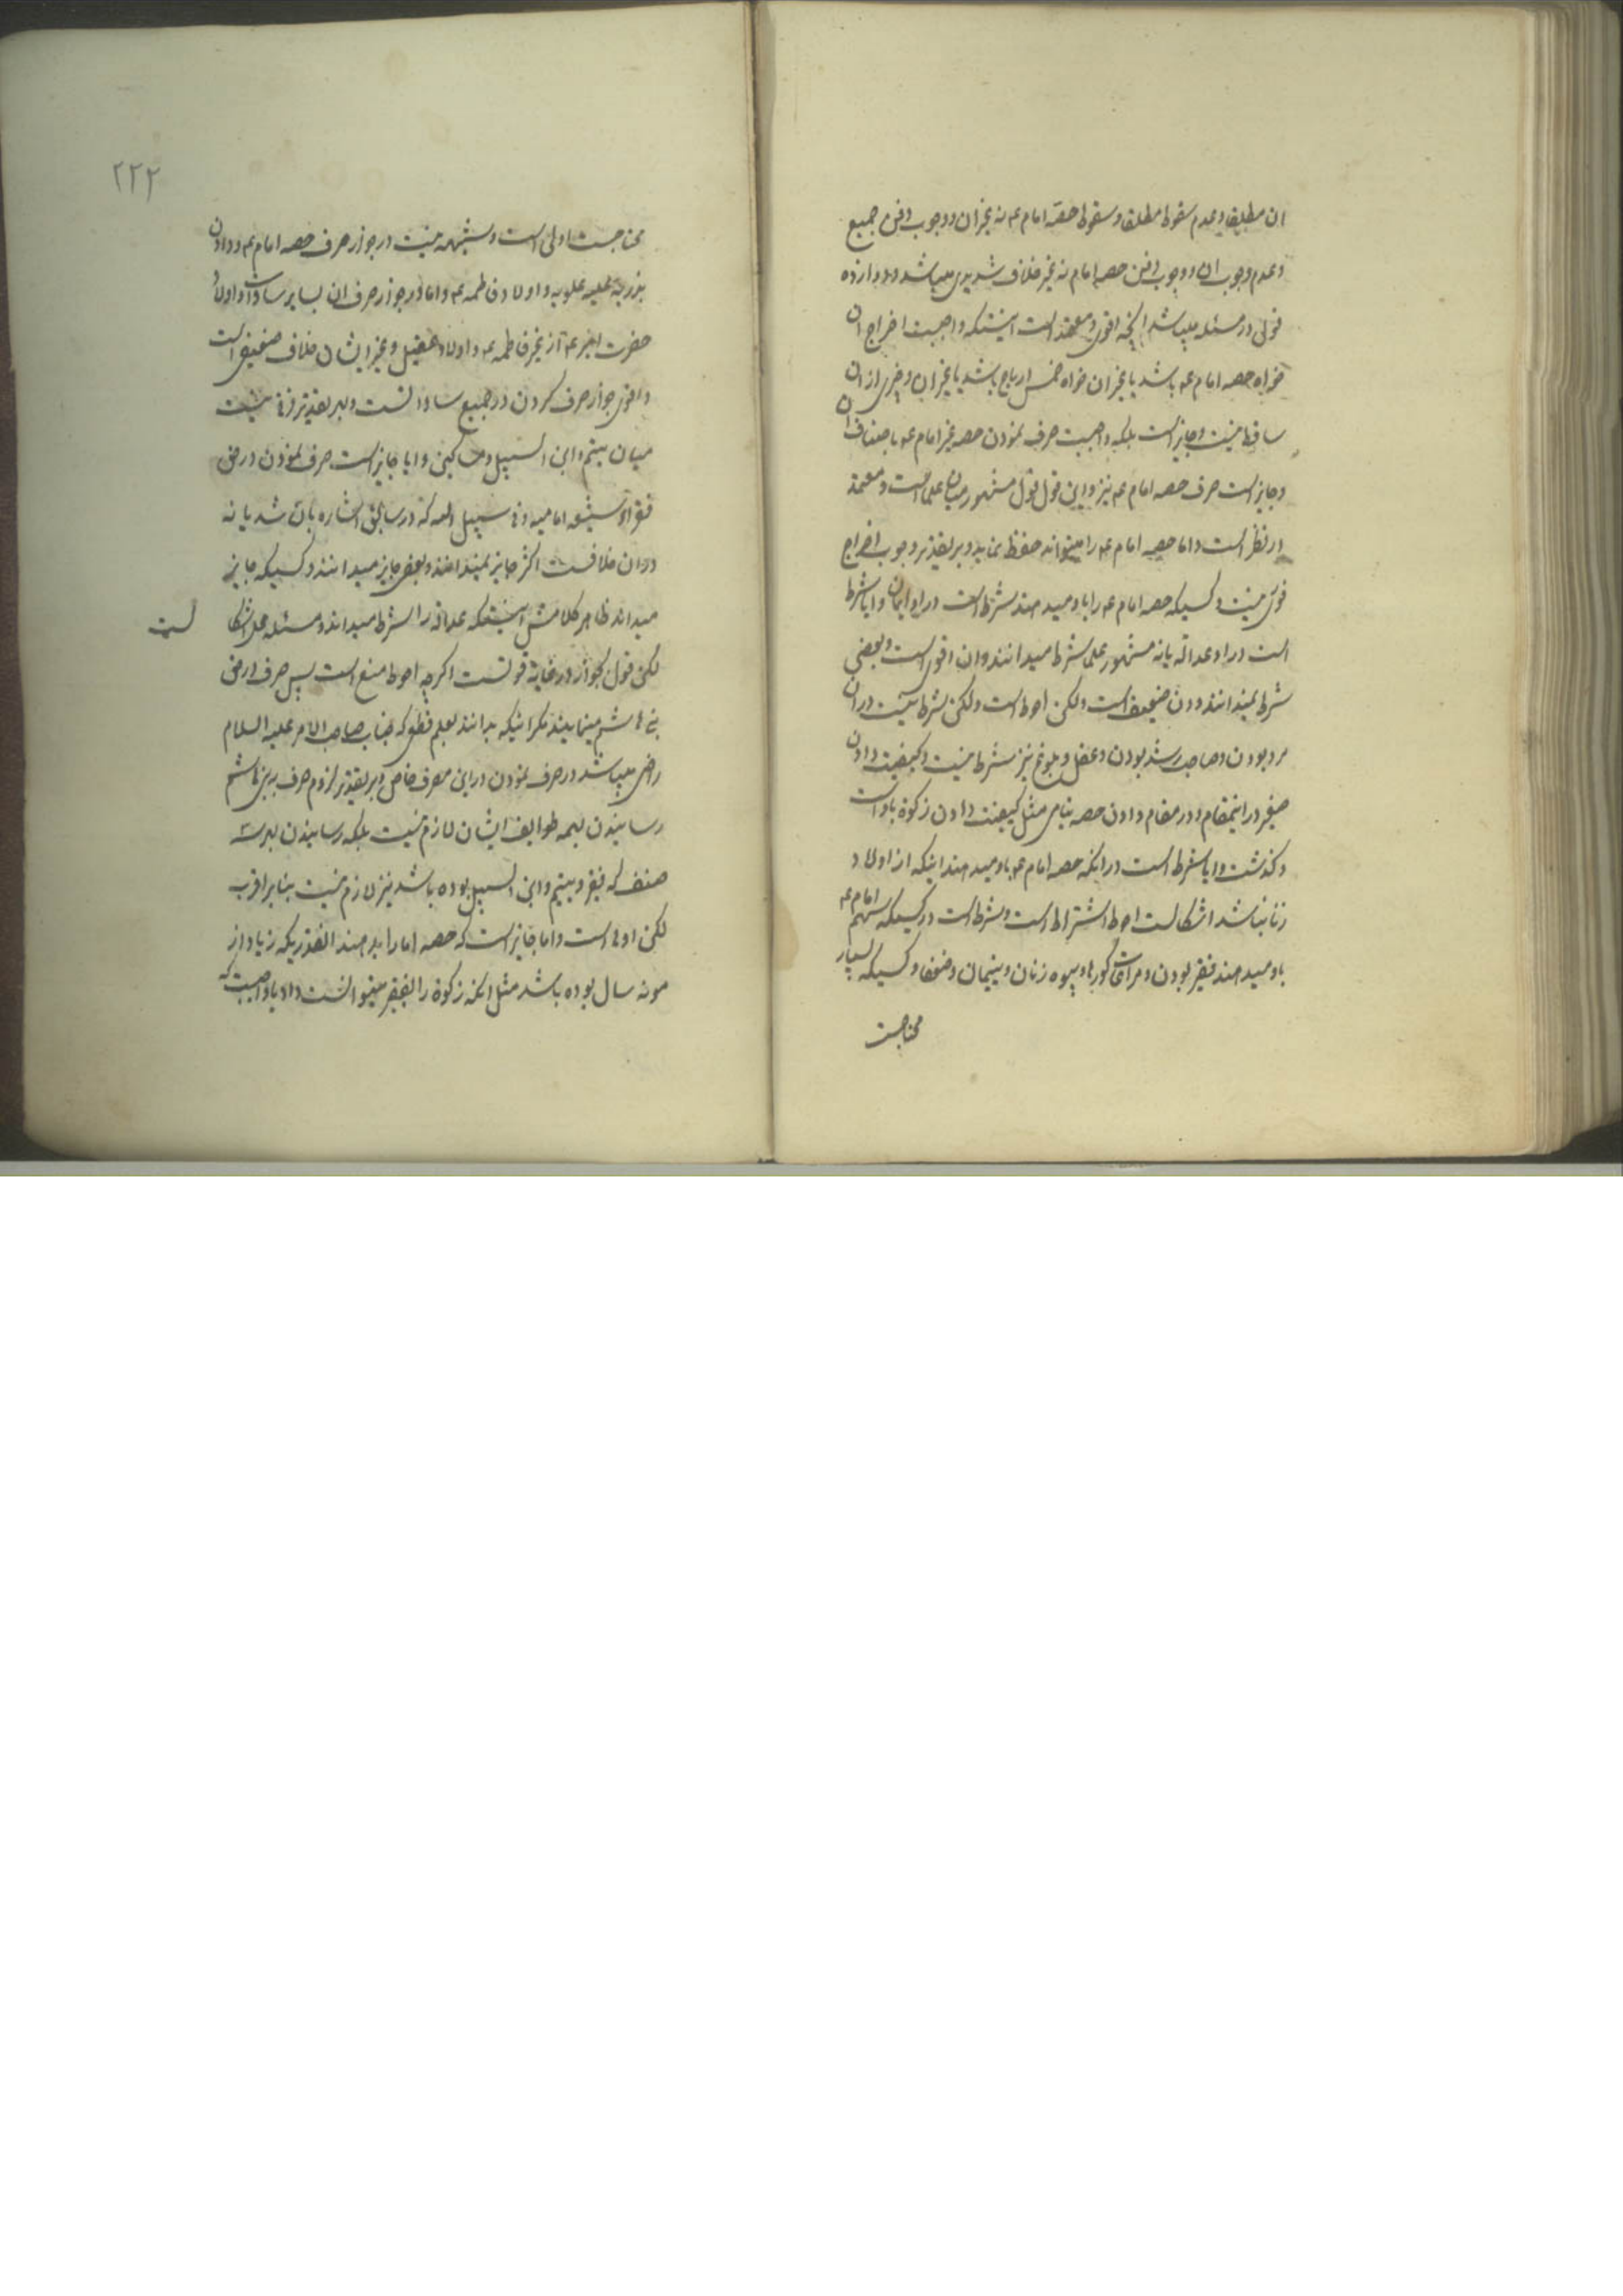 ان مطلقا و عدم سقوط مطلقا و سقوط حصّه امام عم نه غیر ان و وجوب دفن جمیع
و عدم وجوب ان و وجوب دفن حصه امام نه غیر خلاف شدیدی میباشد و دوازده
قولی در مسئله میباشد انچه اقوی و معتمد است اینستکه واجبست اخراج ان
خواه حصه امام عم باشد یا غیر ان خواه خمس ارباح باشد یا غیر ان و چیزی از ان
ساقط نیست و جایز است بلکه واجبست صرف نمودن حصه غیر امام عم باصناف ان
و جایز است صرف حصه امام عم نیز و این قول قول مشهور میان علما است و معتمد
در نظر است و اما حصه امام عم را میتواند حفظ نماید و بر تقدیر وجوب اخراج
فوری نیست و کسیکه حصه امام عم را باو میدهند شرط است در او ایمان و ایا شرط
است در او عدالة یا نه مشهور علما شرط میدانند و ان اقوی است و بعضی
شرط نمیدانند و ان ضعیف است ولکن احوط است ولکن شرط نیست در ان
مرد بودن و صاحب رشد بودن و عقل و بلوغ نیز شرط نیست و کیفیت دادن
صغیر در اینمقام و در مقام دادن حصه بنامی مثل کیفیت دادن زکوة باو است
و کذشت و ایا شرط است در انکه حصه امام عم باو میدهند اینکه از اولاد
زنا نباشد اشکالست احوط اشتراط است و شرط است در کسیکه سهم امام عم
باو میدهند فقیر بودن و مراعات کورها و بیوه زنان و یتیمان و ضعفا و کسیکه بسیار
محتاجست
۲۲۲
محتاجست اولی است و شبهه نیست در جواز صرف حصه امام عم و دادن
بذریه علیه علویه و اولاد فاطمه عم و اما در جواز صرف ان بسایر سادات و اولاد
حضرت امیر عم از غیر فاطمه عم و اولاد عقیل و غیر ایشان خلاف ضعیفی است
و اقوی جواز صرف کردن در جمیع ساداتست و بر تقدیر فرقی نیست
میان یتیم و ابن السبیل و مساکین و ایا جایز است صرف نمودن در حق
فقراء شیعه امامیه و فی سبیل الله که در سابق اشاره بان شد یا نه
در ان خلافست اکثر جایز نمیدانند و بعضی جایز میدانند و کسیکه جایز
میداند ظاهر کلامش اینستکه عدالة را شرط میداند و مسئله محل اشکا لست
لکن قول بجواز در غایة قوتست اکرچه احوط منع است پس صرف در حق
بنی هاشم مینمایند مکر اینکه بدانند بعلم قطعی که جناب صاحب الامر علیه السلام
راضی میباشد در صرف نمودن در این مصرف خاص و بر تقدیر لزوم صرف بر بنی هاشم
رسانیدن بهمه طوایف ایشان لازم نیست بلکه رسانیدن بهر سه
صنف که فقیر و یتیم و ابن السبیل بوده باشد نیز لازم نیست بنابر اقرب
لکن اولی است و اما جایز است که حصه امام را بدهند انقدریکه زیاد از
مونه سال بوده باشد مثل انکه زکوة را بفقیر میتوانست داد یا واجبست که